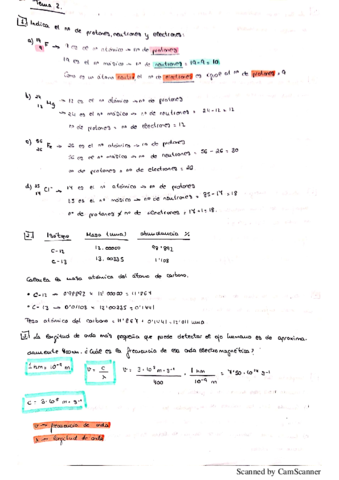 Tema 2.
1 Indica el nº de protones, neutrones y electrones:
a) 19 9 F → 9 es el nº atómico → nº de protones
19 es el nº másico → nº de neutrones = 19-9 = 10
Como es un átomo el nº electrones es igual al nº de protones = 9
b) 24 12 Mg → 12 es el nº atómico → nº de protones
→ 24 es el nº másico → nº de neutrones = 24-12 = 12
nº de protones = nº de electrones = 12
c) 56 26 Fe → 26 es el nº atómico → nº de protones
56 es el nº másico → nº de neutrones = 56 - 26 = 30
nº de protones = nº de electrones = 26
d) Cl⁻ → 17 es el nº atómico → nº de protones
es el nº másico → nº de neutrones = - 17 = 18
nº de protones ≠ nº electrones = 17+1 = 18.
2 Isótopo Masa (uma) abundancia %
C-12 12.00000 98.892
C-13 13.00335 1.108
Calcula la masa atómica del átomo de carbono.
* C-12 → 0.98892 × 12.00000 = 11.867
* C-13 → 0.01108 × 13.00335 = 0.1441
Peso atómico del carbono = 11.867 + 0.1441 = 12.011 uma
La longitud de onda más pequeña que puede detectar el ojo humano es de aproxima-
damente 400nm. ¿Cuál es la frecuencia de esa onda electromagnética?
1 nm = 10⁻⁹ m ν = c / λ ν = 3·10⁸ m·s⁻¹ / 400 · 1 nm / 10⁻⁹ m = 7'50·10¹⁴ s⁻¹
c = 3·10⁸ m·s⁻¹
ν → frecuencia de onda
λ → longitud de onda
Scanned by CamScanner